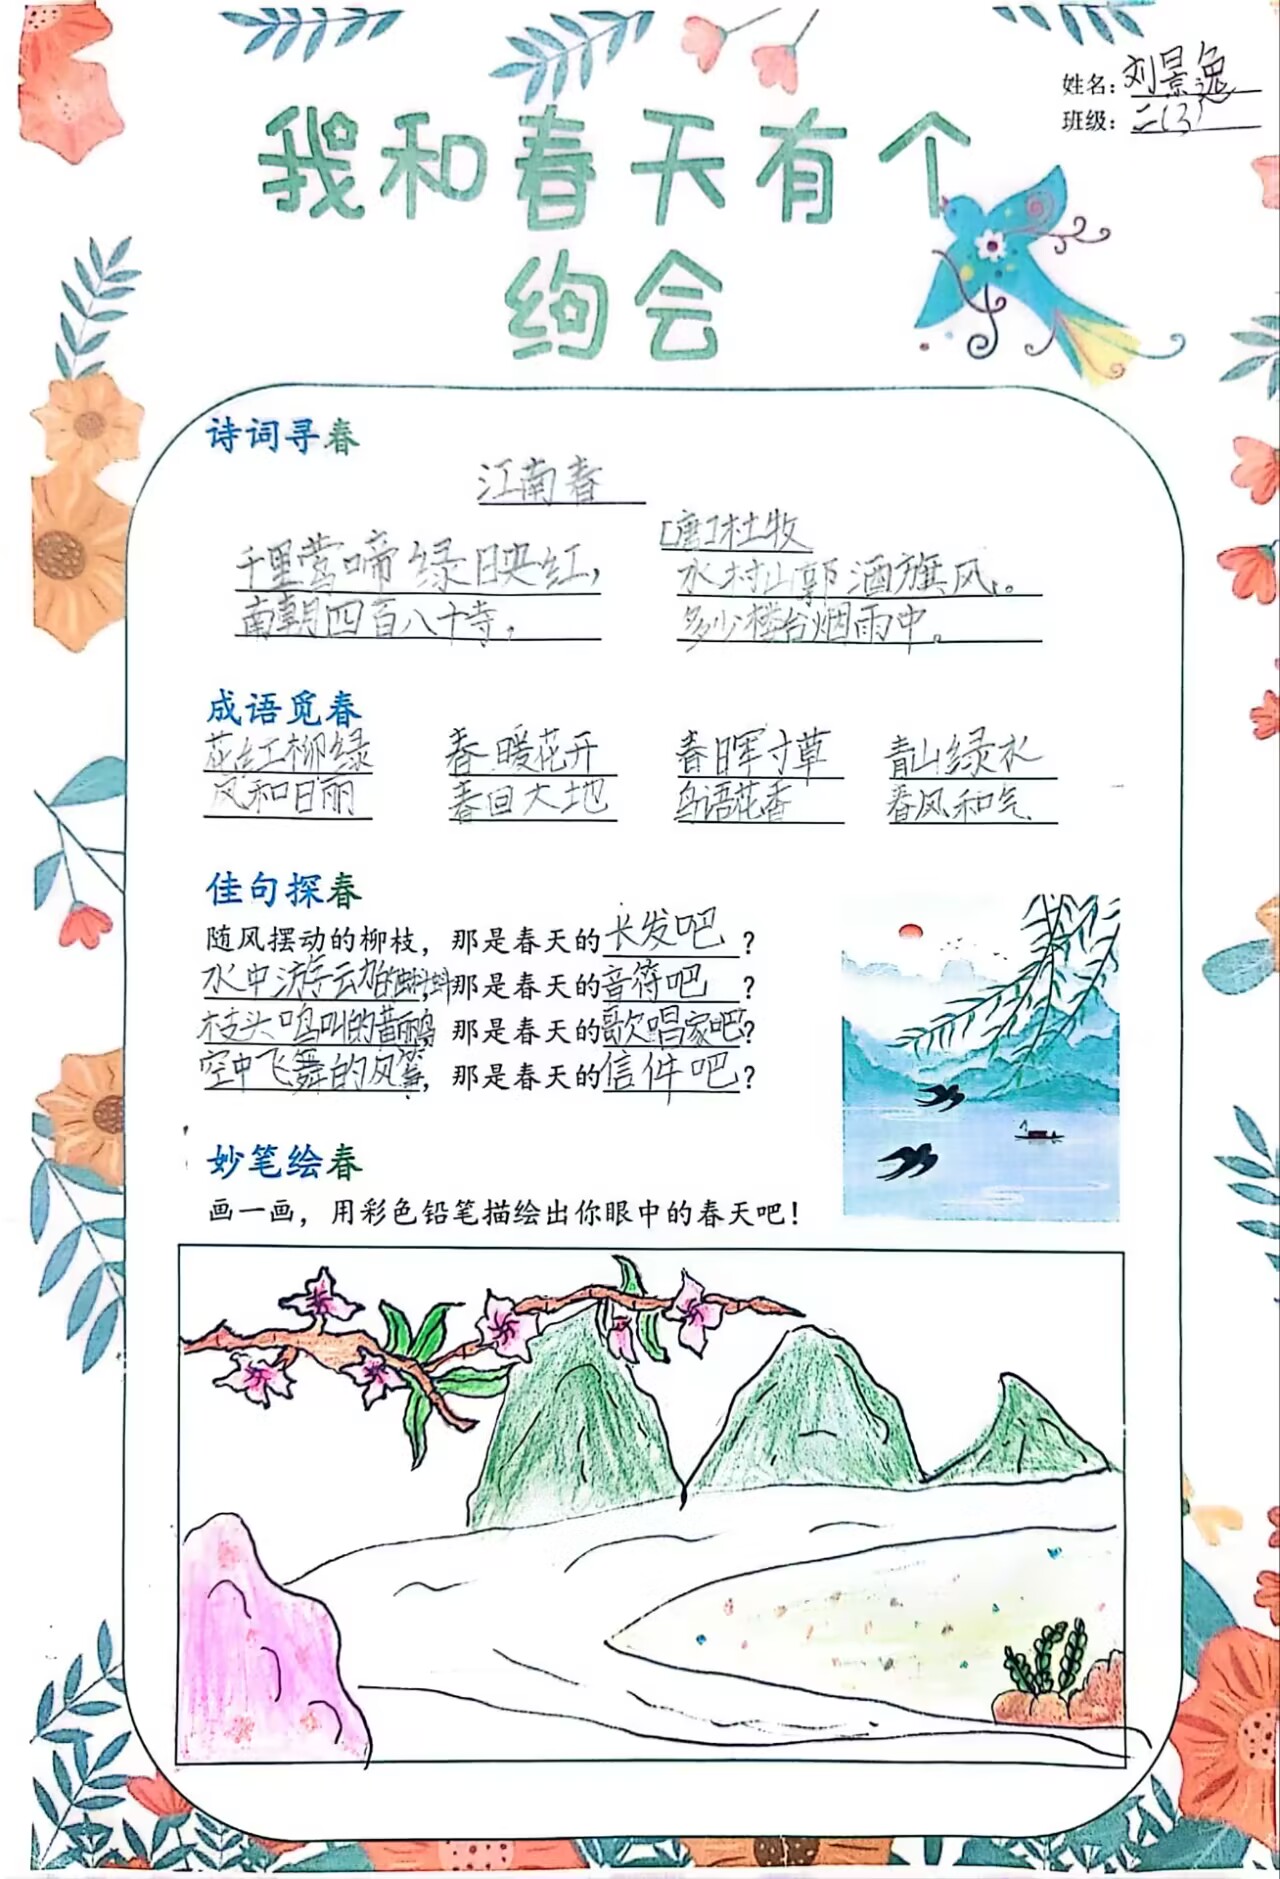 姓名：刘景逸
班级：二（3）
我和春天有个
约会
诗词寻春
江南春
[唐]杜牧
千里莺啼绿映红，水村山郭酒旗风。
南朝四百八十寺，多少楼台烟雨中。
成语觅春
花红柳绿 春暖花开 春晖寸草 青山绿水
风和日丽 春回大地 鸟语花香 春风和气
佳句探春
随风摆动的柳枝，那是春天的长发吧？
水中游动的蝌蚪，那是春天的音符吧？
枝头鸣叫的黄鹂，那是春天的歌唱家吧？
空中飞舞的风筝，那是春天的信件吧？
妙笔绘春
画一画，用彩色铅笔描绘出你眼中的春天吧！